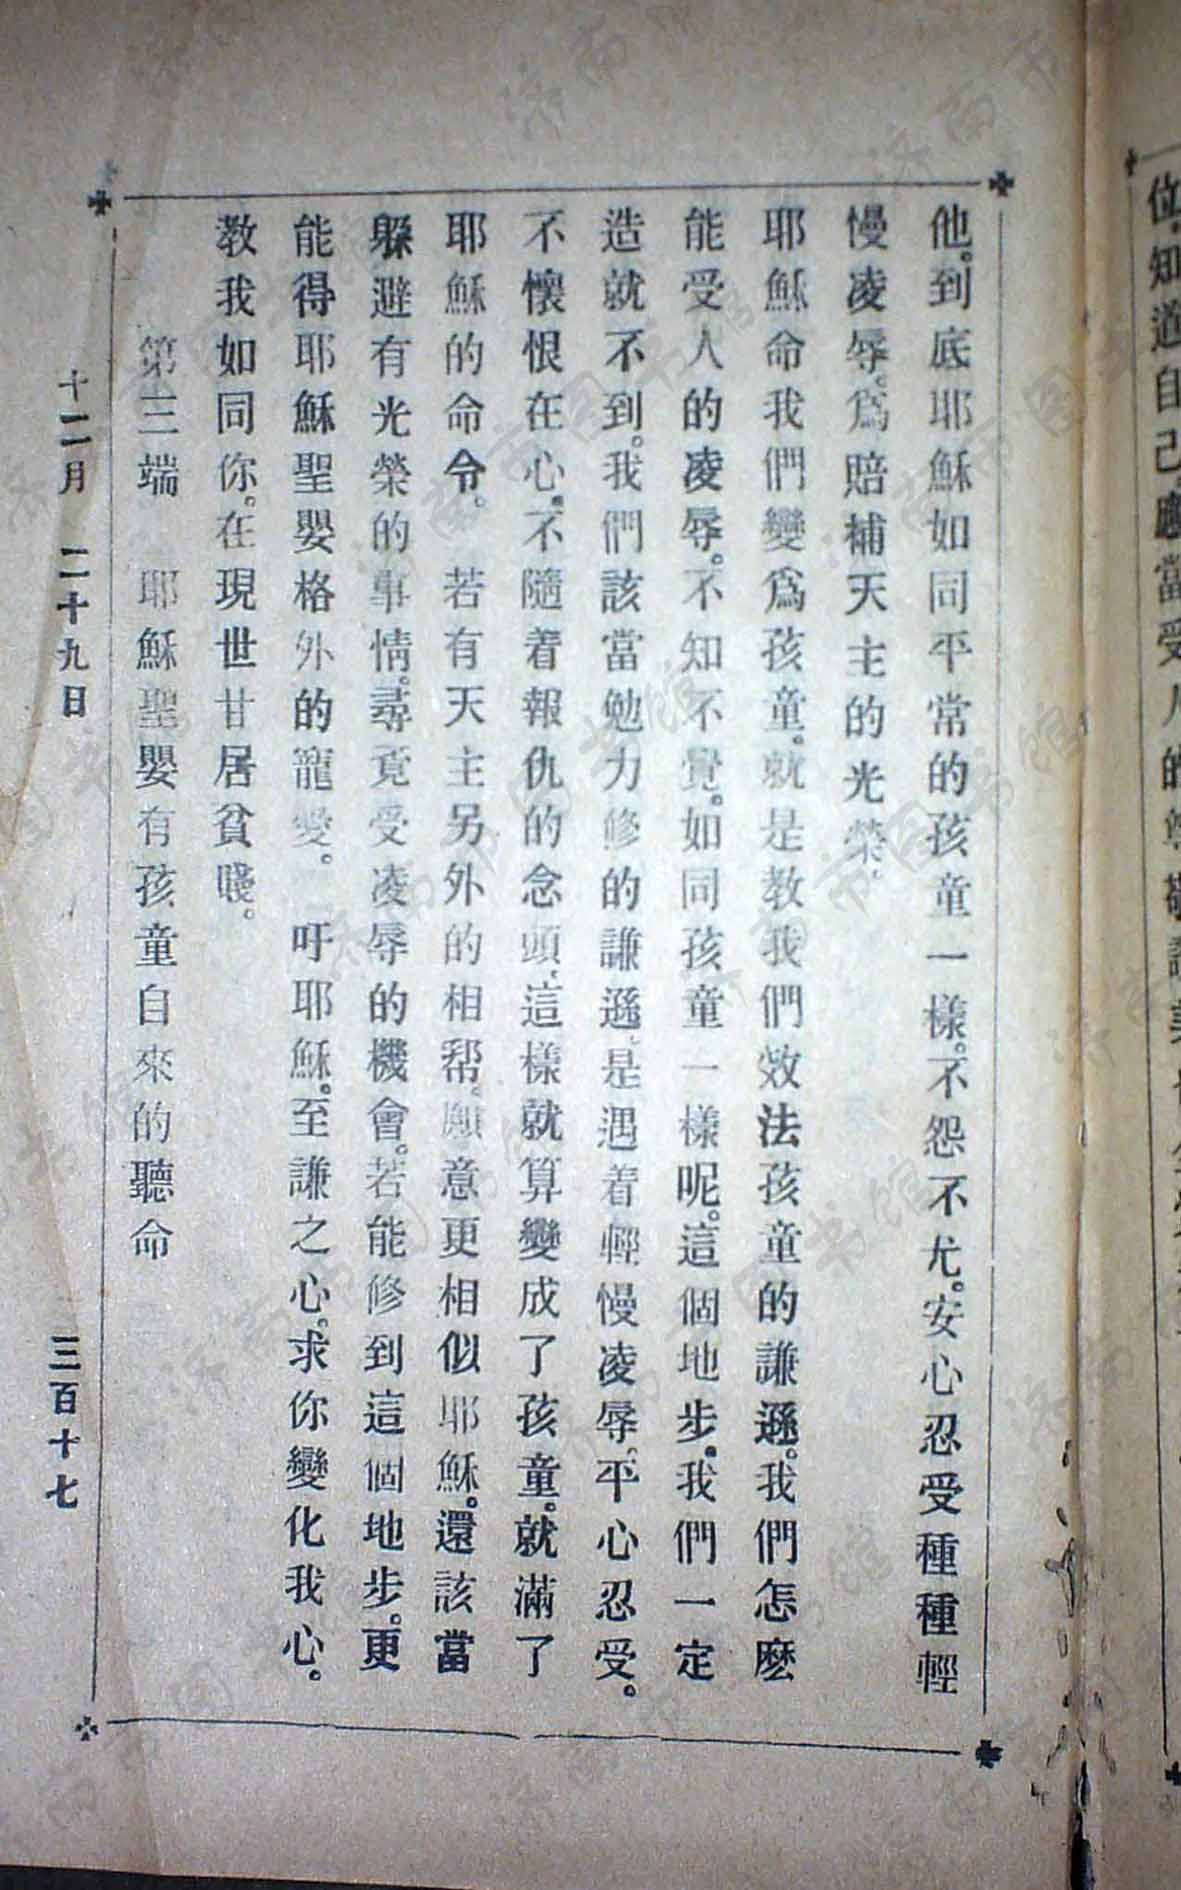 他。到底耶穌如同平常的孩童一樣。不怨不尤。安心忍受種種輕
慢凌辱。爲賠補天主的光榮。
耶穌命我們變爲孩童。就是教我們效法孩童的謙遜。我們怎麽
能受人的凌辱。不知不覺。如同孩童一樣呢。這個地步。我們一定
造就不到。我們該當勉力修的謙遜、是遇着輕慢凌辱、平心忍受。
不懷恨在心。不隨着報仇的念頭、這樣就算變成了孩童。就滿了
耶穌的命令。若有天主另外的相帮。願意更相似耶穌。還該當
躲避有光榮的事情。尋覓受凌辱的機會。若能修到這個地步。更
能得耶穌聖嬰格外的寵愛。吁耶穌。至謙之心。求你變化我心。
教我如同你。在現世甘居貧賤。
第三端　耶穌聖嬰有孩童自來的聽命
十二月　二十九日　三百十七
位。知道自己應當受人的
济南市图书馆